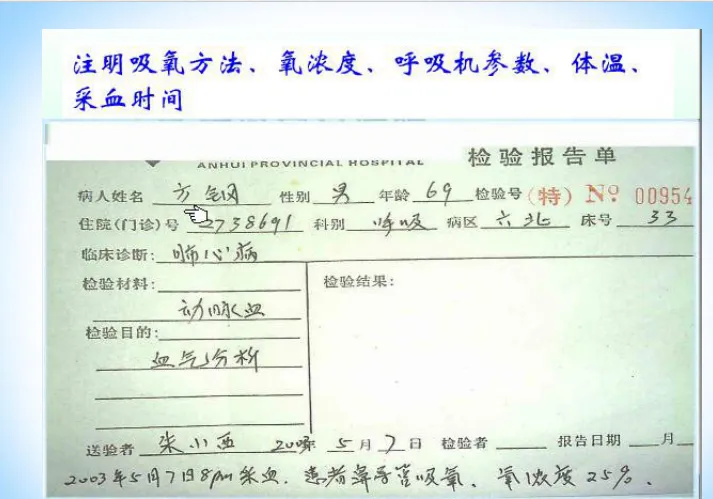 注明吸氧方法、氧浓度、呼吸机参数、体温、
采血时间
ANHUI PROVINCIAL HOSPITAL 检验报告单
病人姓名 方钢 性别 男 年龄 69 检验号 (特) No 00954
住院(门诊)号 2738691 科别 呼吸 病区 六北 床号 33
临床诊断: 肺心病
检验材料: 检验结果:
动脉血
检验目的:
血气分析
送验者 朱小西 2003年 5月 7日 检验者 报告日期 月
2003年5月7日8pm采血. 患者鼻导管吸氧. 氧浓度25%.